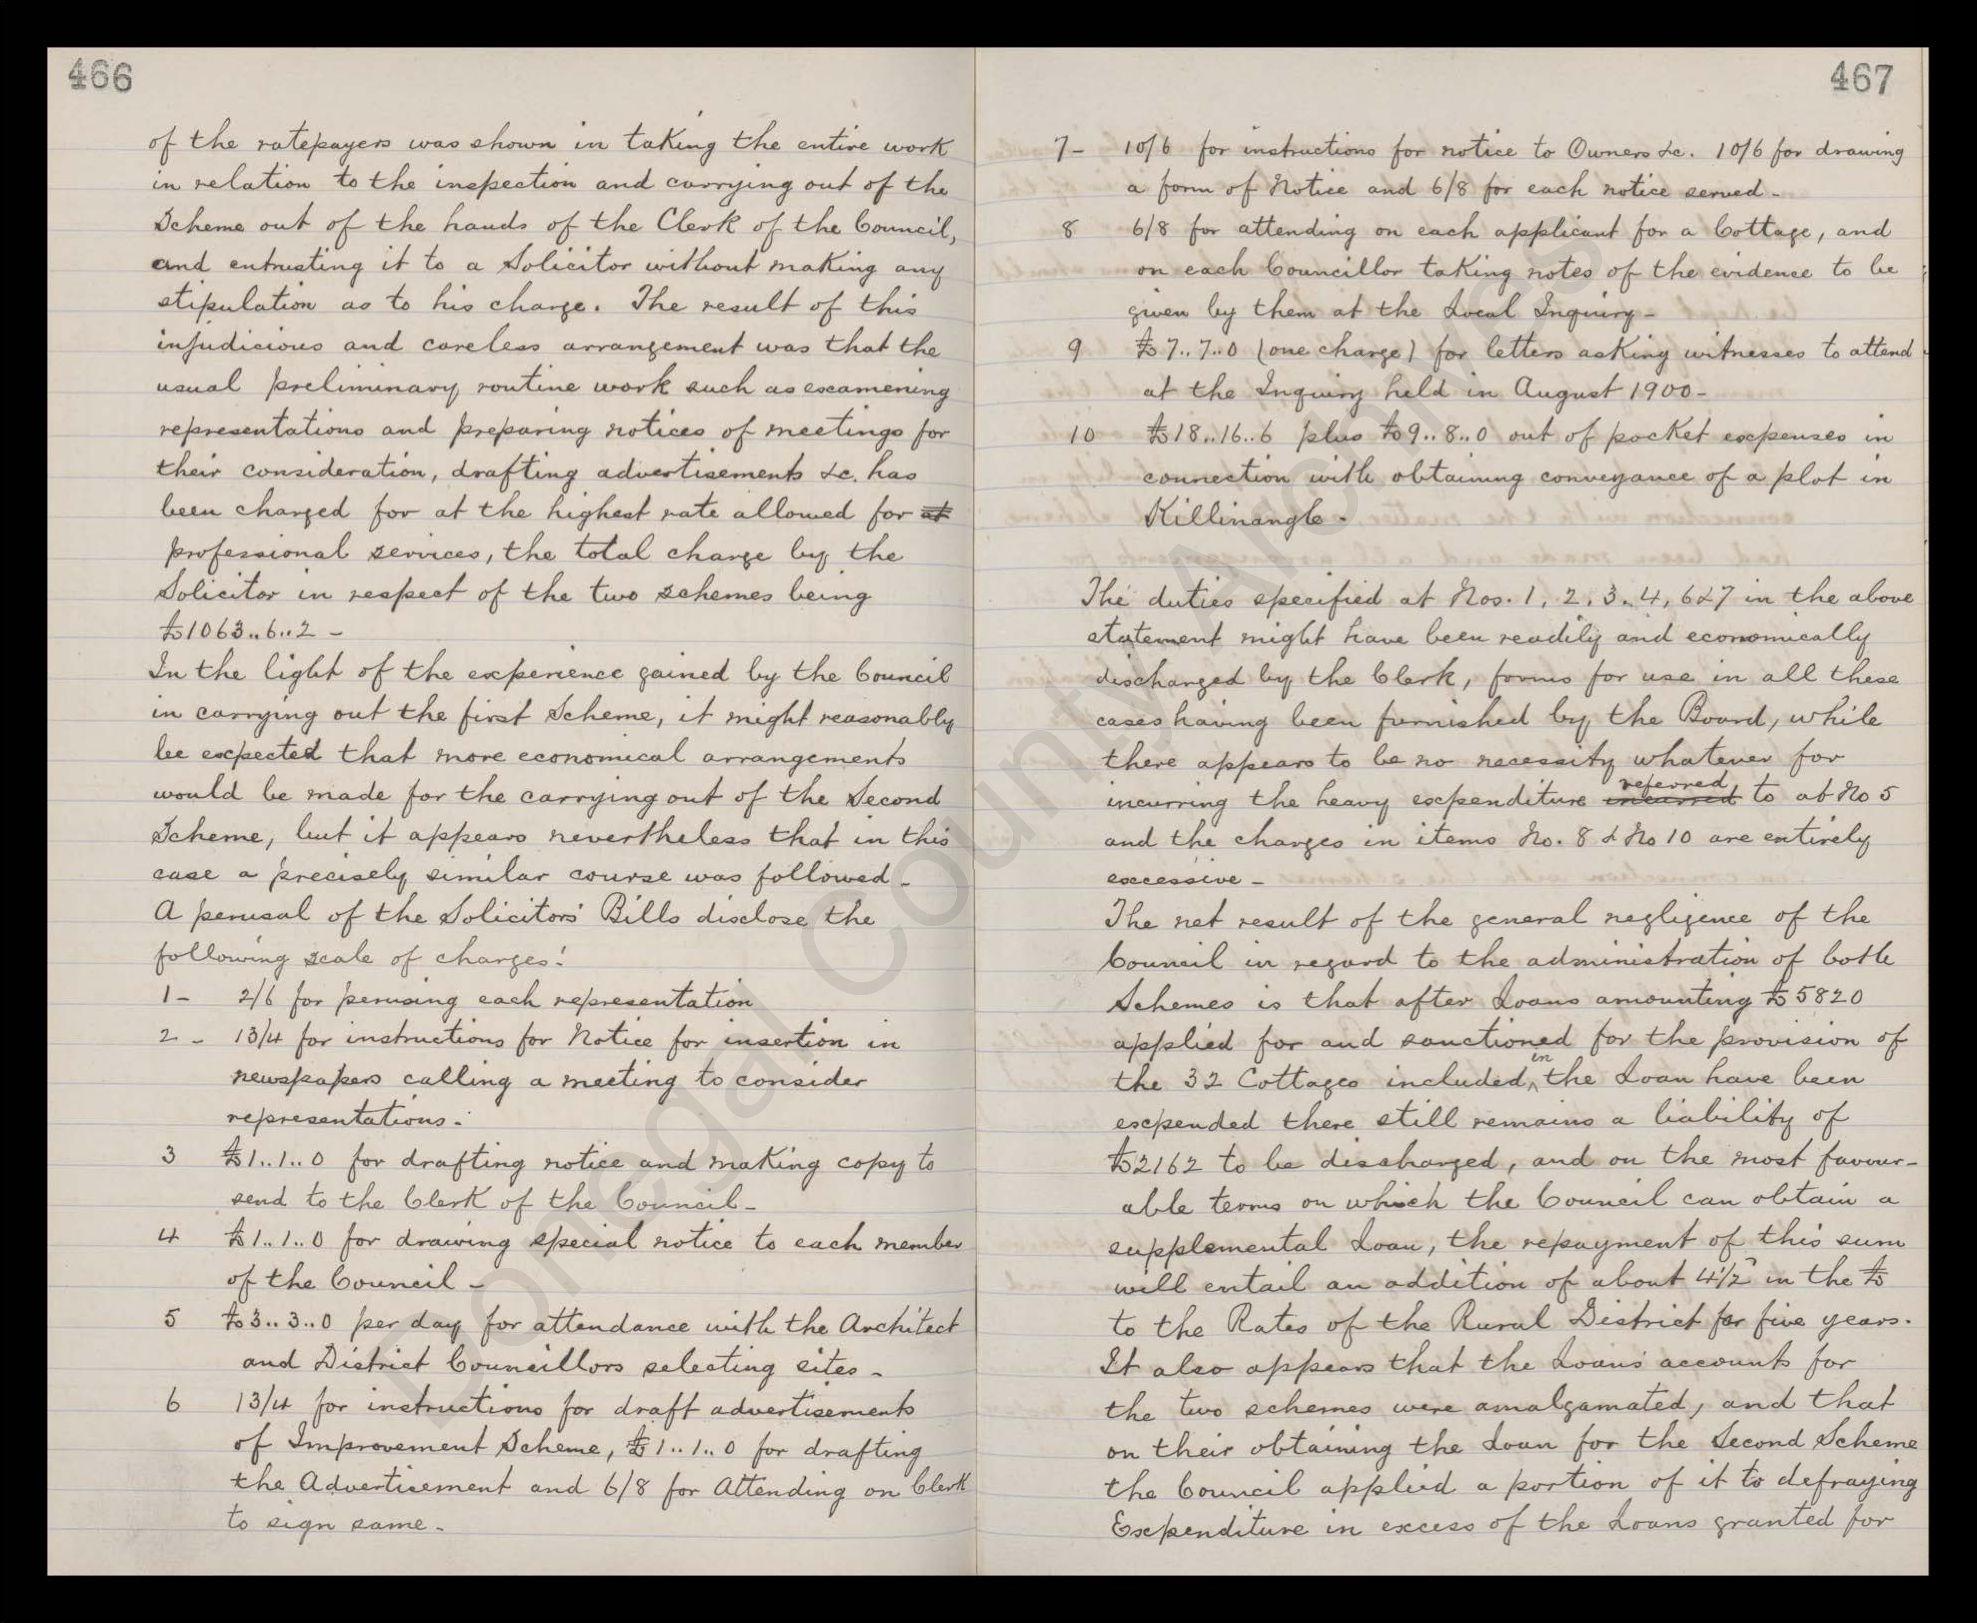 466
of the ratepayers was shown in taking the entire work
in relation to the inspection and carrying out of the
Scheme out of the hands of the Clerk of the Council,
and entrusting it to a Solicitor without making any
stipulation as to his charge. The result of this
injudicious and careless arrangement was that the
usual preliminary routine work such as examening
representations and preparing notices of meetings for
their consideration, drafting advertisements &c. has
been charged for at the highest rate allowed for at
professional services, the total charge by the
Solicitor in respect of the two schemes being
£1063..6..2 -
In the light of the experience gained by the Council
in carrying out the first Scheme, it might reasonably
be expected that more economical arrangements
would be made for the carrying out of the Second
Scheme, but it appears nevertheless that in this
case a precisely similar course was followed -
A perusal of the Solicitors' Bills disclose the
following scale of charges:
1 - 2/6 for perusing each representation
2 - 13/4 for instructions for Notice for insertion in
newspapers calling a meeting to consider
representations.
3 £1..1..0 for drafting notice and making copy to
send to the Clerk of the Council -
4 £1..1..0 for drawing special notice to each member
of the Council -
5 £3..3..0 per day for attendance with the Architect
and District Councillors selecting sites -
6 13/4 for instructions for draft advertisements
of Improvement Scheme, £1..1..0 for drafting
the Advertisement and 6/8 for Attending on Clerk
to sign same -
467
7 - 10/6 for instructions for notice to Owners &c. 10/6 for drawing
a form of Notice and 6/8 for each notice served -
8 6/8 for attending on each applicant for a Cottage, and
on each Councillor taking notes of the evidence to be
given by them at the Local Inquiry -
9 £7..7..0 (one charge) for letters asking witnesses to attend
at the Inquiry held in August 1900 -
10 £18..16..6 plus £9..8..0 out of pocket expenses in
connection with obtaining conveyance of a plot in
Killinangle -
The duties specified at Nos. 1, 2, 3, 4, 6 & 7 in the above
statement might have been readily and economically
discharged by the Clerk, forms for use in all these
cases having been furnished by the Board, while
there appears to be no necessity whatever for
incurring the heavy expenditure incurred referred to at No 5
and the charges in items No. 8 & No 10 are entirely
excessive -
The net result of the general negligence of the
Council in regard to the administration of both
Schemes is that after Loans amounting £5820
applied for and sanctioned for the provision of
the 32 Cottages included in the Loan have been
expended there still remains a liability of
£2162 to be discharged, and on the most favour-
able terms on which the Council can obtain a
supplemental Loan, the repayment of this sum
will entail an addition of about 4½ in the £
to the Rates of the Rural District for five years.
It also appears that the Loans accounts for
the two schemes were amalgamated, and that
on their obtaining the Loan for the Second Scheme
the Council applied a portion of it to defraying
Expenditure in excess of the Loans granted for
Donegal County Archives